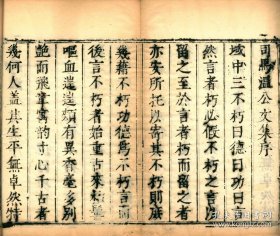 司馬溫公文集序
域中三不朽曰德曰功曰言
然言者不朽必假不朽之言
留之至於言者朽而留之者
亦安所托以寄其不朽則庶
幾藉不朽功德爲不朽言而
後言不朽者始重古來稱
嘔血選遠類有異香毫多別
艶面飛章寓韵寸心千古者
幾何人蓋其生平無卓然特